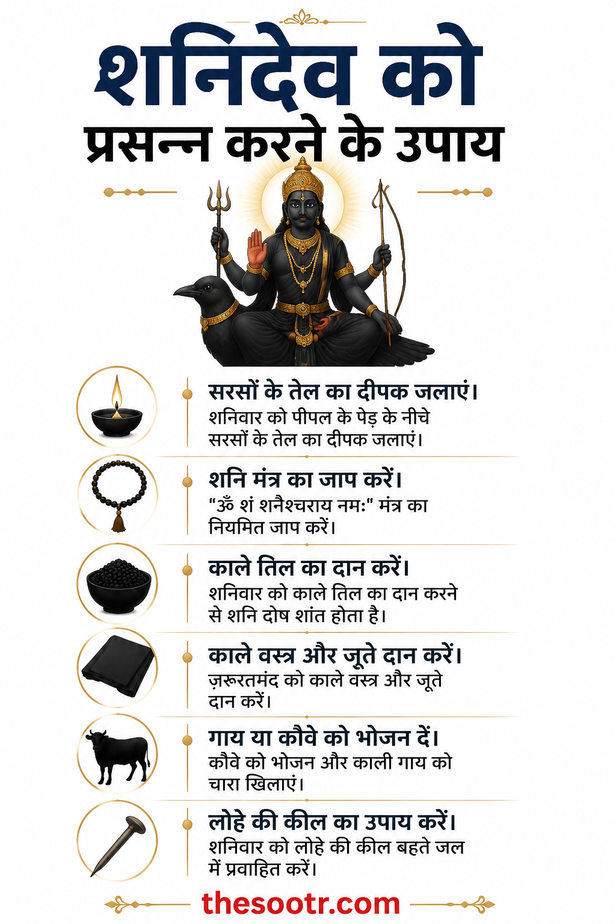 शनिदेव को
प्रसन्न करने के उपाय
सरसों के तेल का दीपक जलाएं।
शनिवार को पीपल के पेड़ के नीचे
सरसों के तेल का दीपक जलाएं।
शनि मंत्र का जाप करें।
"ॐ शं शनैश्चराय नमः" मंत्र का
नियमित जाप करें।
काले तिल का दान करें।
शनिवार को काले तिल का दान करने
से शनि दोष शांत होता है।
काले वस्त्र और जूते दान करें।
ज़रूरतमंद को काले वस्त्र और जूते
दान करें।
गाय या कौवे को भोजन दें।
कौवे को भोजन और काली गाय को
चारा खिलाएं।
लोहे की कील का उपाय करें।
शनिवार को लोहे की कील बहते जल
में प्रवाहित करें।
thesootr.com